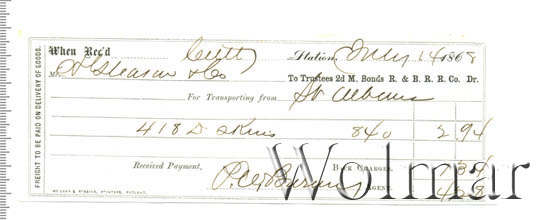 When Rec'd Station, July 14 1868
M A Gleason & Co To Trustees 2d M. Bonds R. & B. R. R. Co. Dr.
For Transporting from St Albans
418 D Skins 840 2 94
Received Payment, BACK CHARGES, 1 34
AGENT. 4 28
FREIGHT TO BE PAID ON DELIVERY OF GOODS.
Wolmar